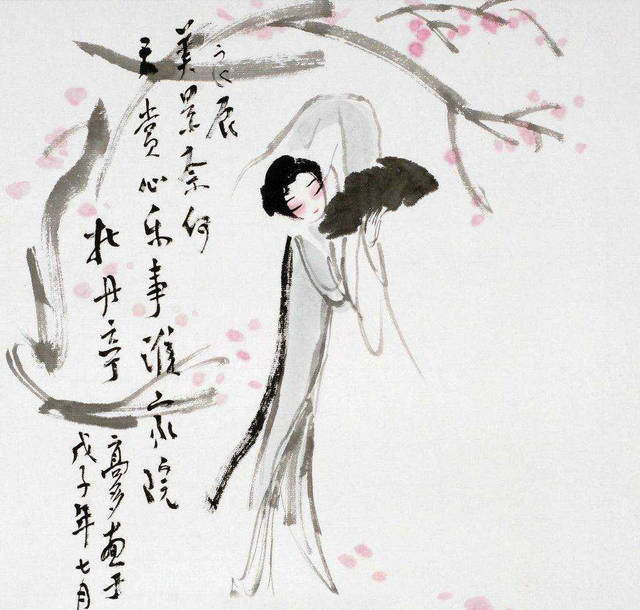 良辰
美景奈何
天赏心乐事谁家院
牡丹亭
高多画于
戊子年七月